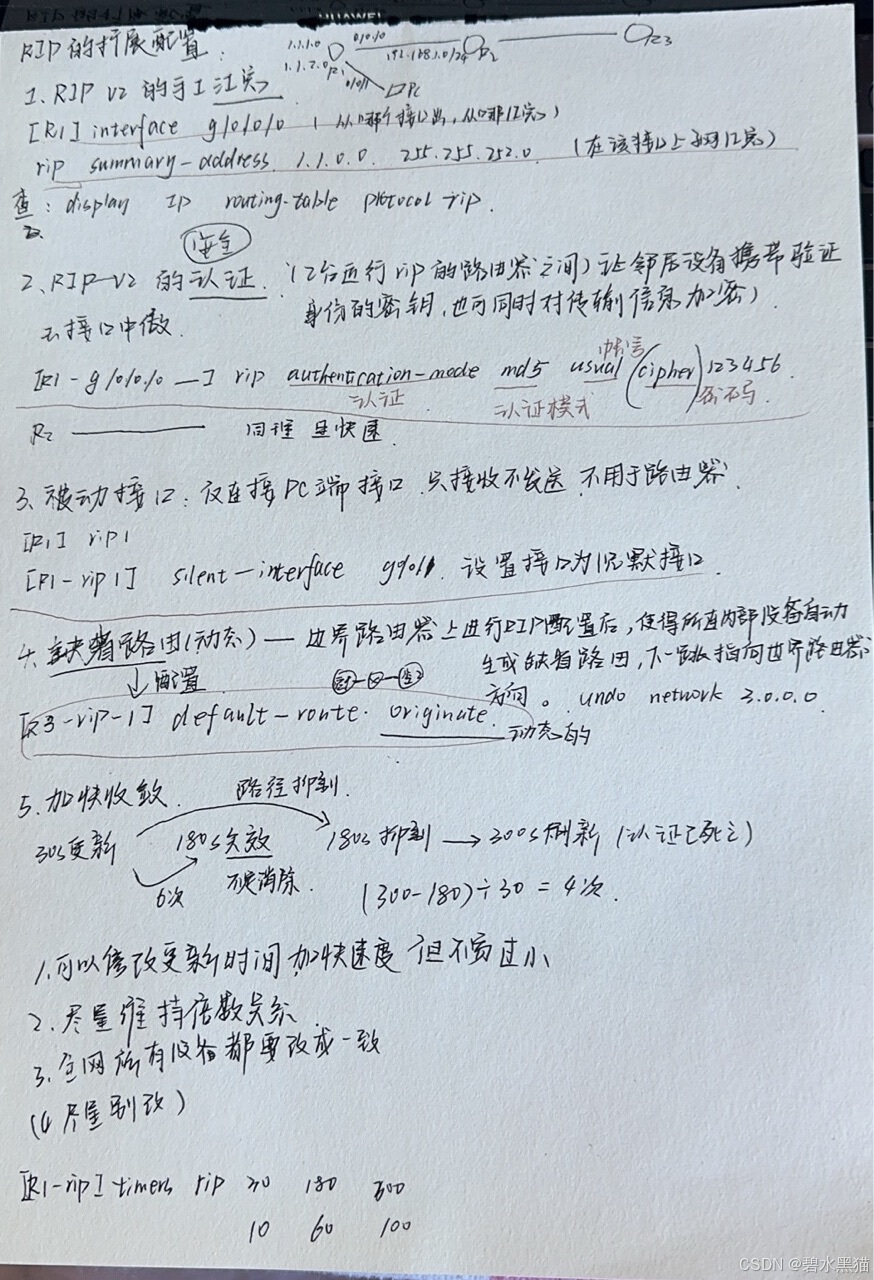 HUAWEI
RIP的扩展配置:
1.1.1.0
1.1.2.0 R1
0/0/0
192.168.1.0/24 R2
R3
0/0/1
PC
1. RIP V2 的手工汇总
[R1] interface g/0/0/0 (从哪个接口出,从哪汇总)
rip summary-address 1.1.0.0 255.255.252.0 (在该接口上子网汇总)
查: display IP routing-table protocol rip.
安全
2、RIP V2 的认证. (2台运行rip的路由器之间)让邻居设备携带验证
身份的密钥,也可同时对传输信息加密)
去接口中做.
[R1-g/0/0/0—] rip authentication-mode md5 usual (cipher) 123456.
认证 认证模式 密码
R2 —— 同理 是快速
3、被动接口: 仅连接PC端接口 只接收不发送 不用于路由器
[R1] rip1
[R1-rip1] silent-interface g0/0/1 设置接口为沉默接口
4、缺省路由(动态) — 边界路由器上进行RIP配置后,使得所有内部设备自动
生成缺省路由,下一跳指向边界路由器
方向。 undo network 3.0.0.0
↓配置
[R3-rip-1] default-route originate
动态的
5、加快收敛
路径抑制.
30s更新 180s失效 180s抑制 → 300s刷新 (认证已死亡)
6次 不是消除. (300-180)÷30 = 4次.
1、可以修改更新时间,加快速度 但不宜过小
2、尽量维持倍数关系
3、全网所有设备都要改成一致
(4 尽量别改)
[R1-rip] timers rip 30 180 300
10 60 100
CSDN @碧水黑猫